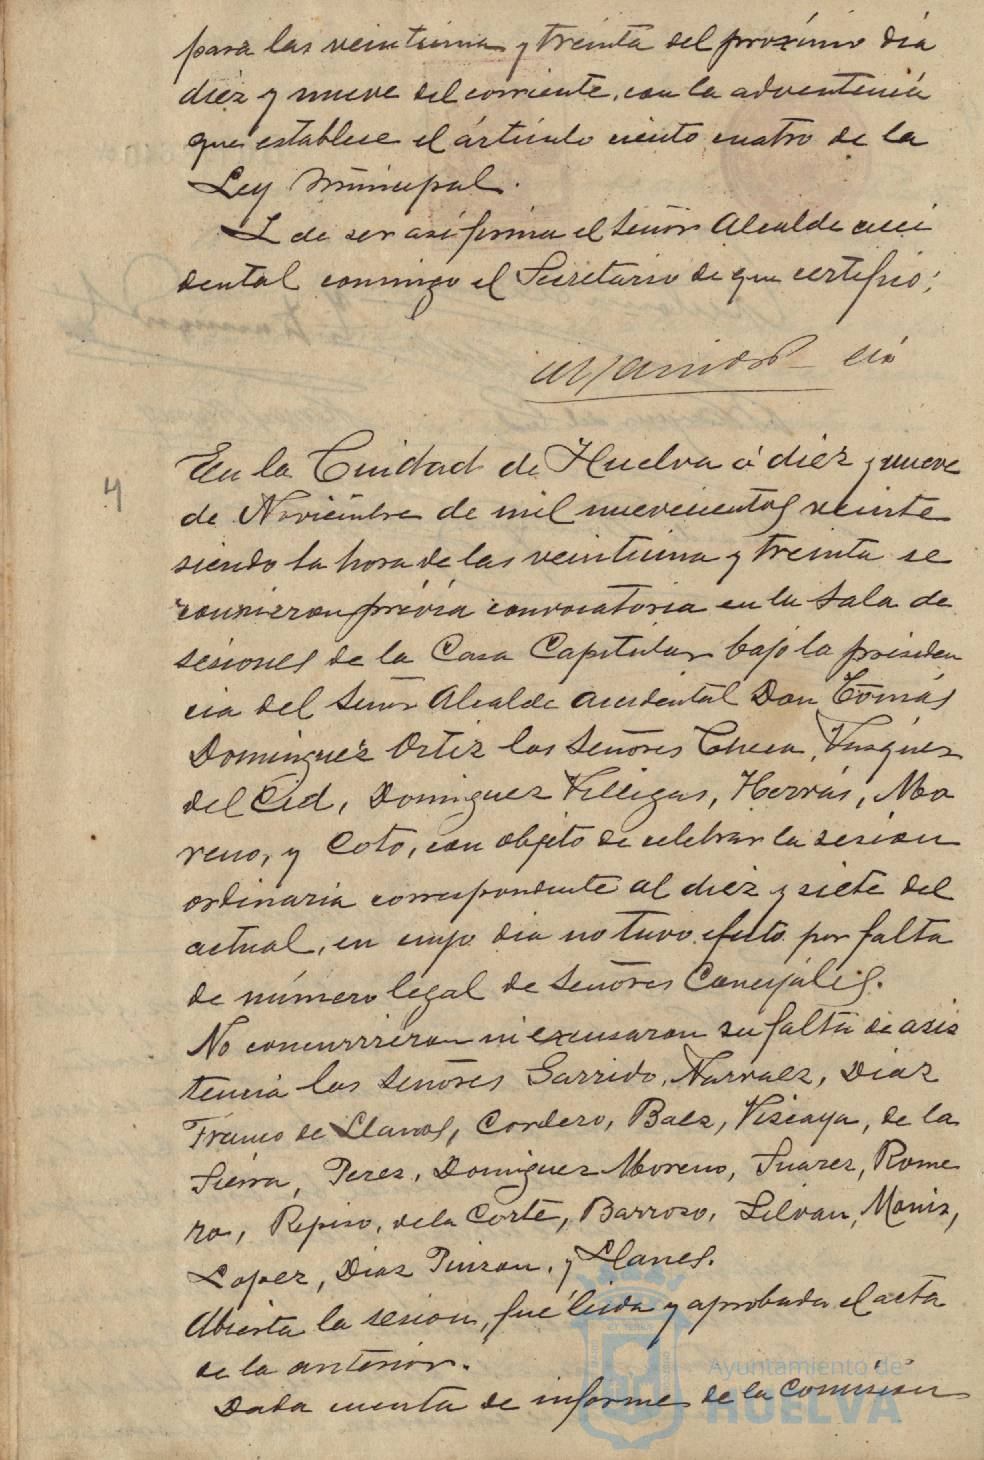 para las veintiuna y treinta del proximo dia
diez y nueve del corriente, con la advertencia
que establece el artículo ciento cuatro de la
Ley Municipal.
Y de ser asi firma el Señor Alcalde acci
dental conmigo el Secretario de que certifico;
En la Ciudad de Huelva á diez y nueve
4
de Noviembre de mil nuevecientos veinte
siendo la hora de las veintiuna y treinta se
reunieron prévia convocatoria en la Sala de
sesiones de la Casa Capitular bajo la presiden
cia del Señor Alcalde accidental Don Tomás
Dominguez Ortiz los Señores Checa, Vazquez
del Cid, Dominguez Villegas, Herrás, Mo
reno, y Coto, con objeto de celebrar la sesion
ordinaria correspondiente al diez y siete del
actual, en cuyo dia no tuvo efecto por falta
de número legal de Señores Concejales.
No concurrieron ni excusaron su falta de asis
tencia los Señores Garrido, Narvaez, Diaz
Franco de Llanos, Cordero, Baez, Viscaya, de la
Sierra, Perez, Dominguez Moreno, Suarez, Rome
ro, Repiso, de la Corte, Barroso, Silvan, Moniz,
Lopez, Diaz Pinzon, y Llanes.
Abierta la sesion, fué leida y aprobada el acta
de la anterior.
Dada cuenta de informe de la Comision
Ayuntamiento de
HUELVA